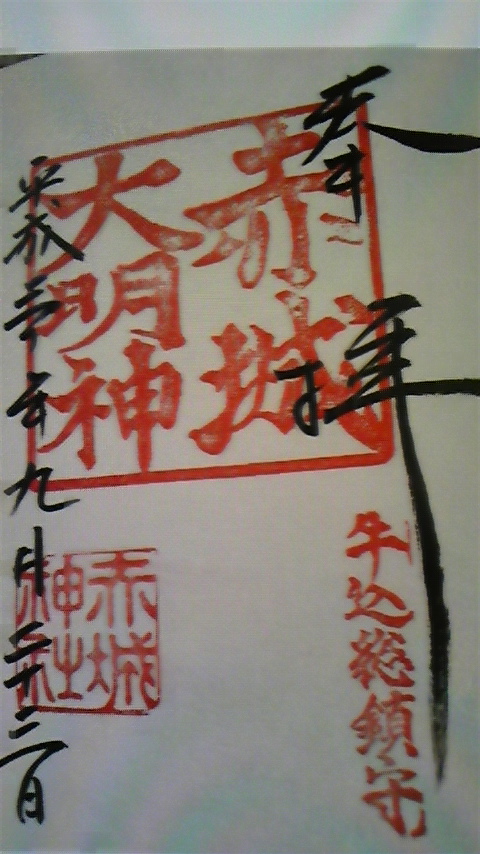 奉拝
牛込総鎮守
赤城
大明神
赤城
神社
平成 年九月二十二日